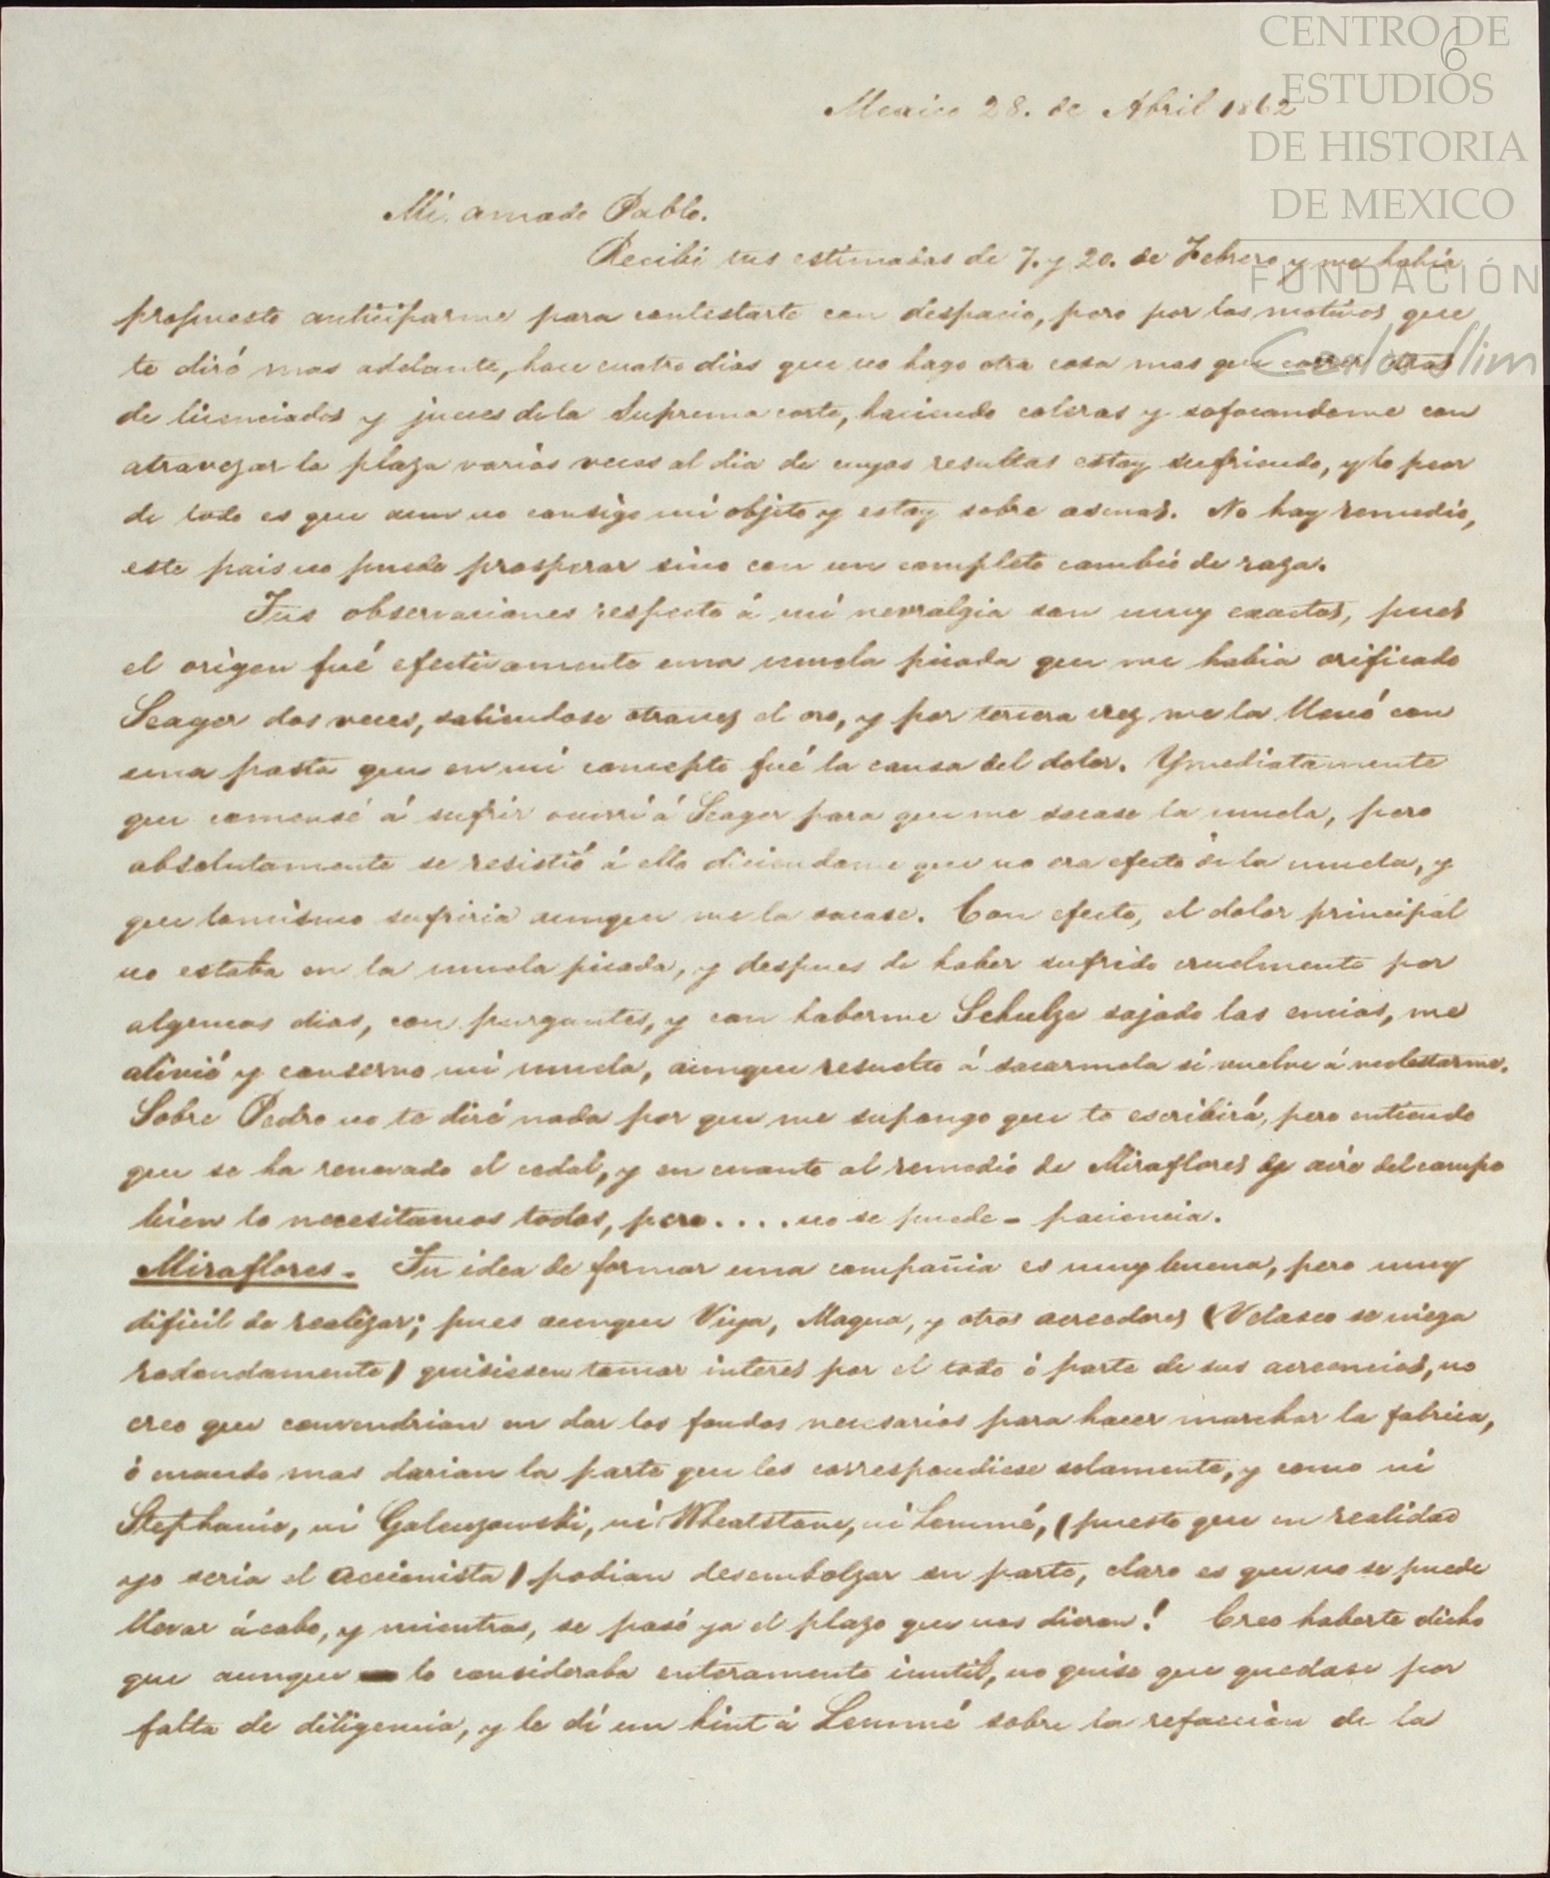 CENTRO DE
ESTUDIOS
DE HISTORIA
DE MEXICO
FUNDACIÓN
Carlos Slim
6
Mexico 28. de Abril 1862
Mi amado Pablo.
Recibi tus estimadas de 7. y 20. de Febrero y me habia
propuesto anticiparme para contestarte con despacio, pero por los motivos que
te diré mas adelante, hace cuatro dias que no hago otra cosa mas que correr tras
de licenciados y jueces de la Suprema corte, haciendo coleras y sofocandome con
atravezar la plaza varias veces al dia de cuyas resultas estoy sufriendo, y lo peor
de todo es que aun no consigo mi objeto y estoy sobre ascuas. No hay remedio,
este pais no puede prosperar sino con un completo cambio de raza.
Tus observaciones respecto á mi nevralgia son muy exactas, pues
el origen fué efectivamente una muela picada que me habia orificado
Seager dos veces, saliendose otravez el oro, y por tercera vez me la llenó con
una pasta que en mi concepto fué la causa del dolor. Ymediatamente
que comensé á sufrir ocurrí á Seager para que me sacase la muela, pero
absolutamente se resistió á ello diciendome que no era efecto de la muela, y
que lo mismo sufriria aunque me la sacase. Con efecto, el dolor principal
no estaba en la muela picada, y despues de haber sufrido cruelmente por
algunos dias, con purgantes, y con haberme Schulze sajado las encias, me
alivió y conservo mi muela, aunque resuelto á sacarmela si vuelve á molestarme.
Sobre Pedro no te diré nada por que me supongo que te escribirá, pero entiendo
que se ha renovado el cedal, y en cuanto al remedio de Miraflores y aire del campo
bien lo necesitamos todos, pero.... no se puede - paciencia.
Miraflores. Tu idea de formar una compañia es muy buena, pero muy
dificil de realizar; pues aunque Viya, Magua, y otros acreedores (Velasco se niega
redondamente) quisiesen tomar interes por el todo ó parte de sus acreencias, no
creo que convendrian en dar los fondos necesarios para hacer marchar la fabrica,
ó cuando mas darian la parte que les correspondiese solamente, y como ni
Stephanie, ni Galenzowski, ni Wheatstone, ni Lemmé, (puesto que en realidad
yo seria el accionista) podian desembolzar su parte, claro es que no se puede
llevar ácabo, y mientras, se pasó ya el plazo que nos dieron! Creo haberte dicho
que aunque lo consideraba enteramente inutil, no quise que quedase por
falta de diligencia, y le dí un hint á Lemmé sobre la refaccion de la